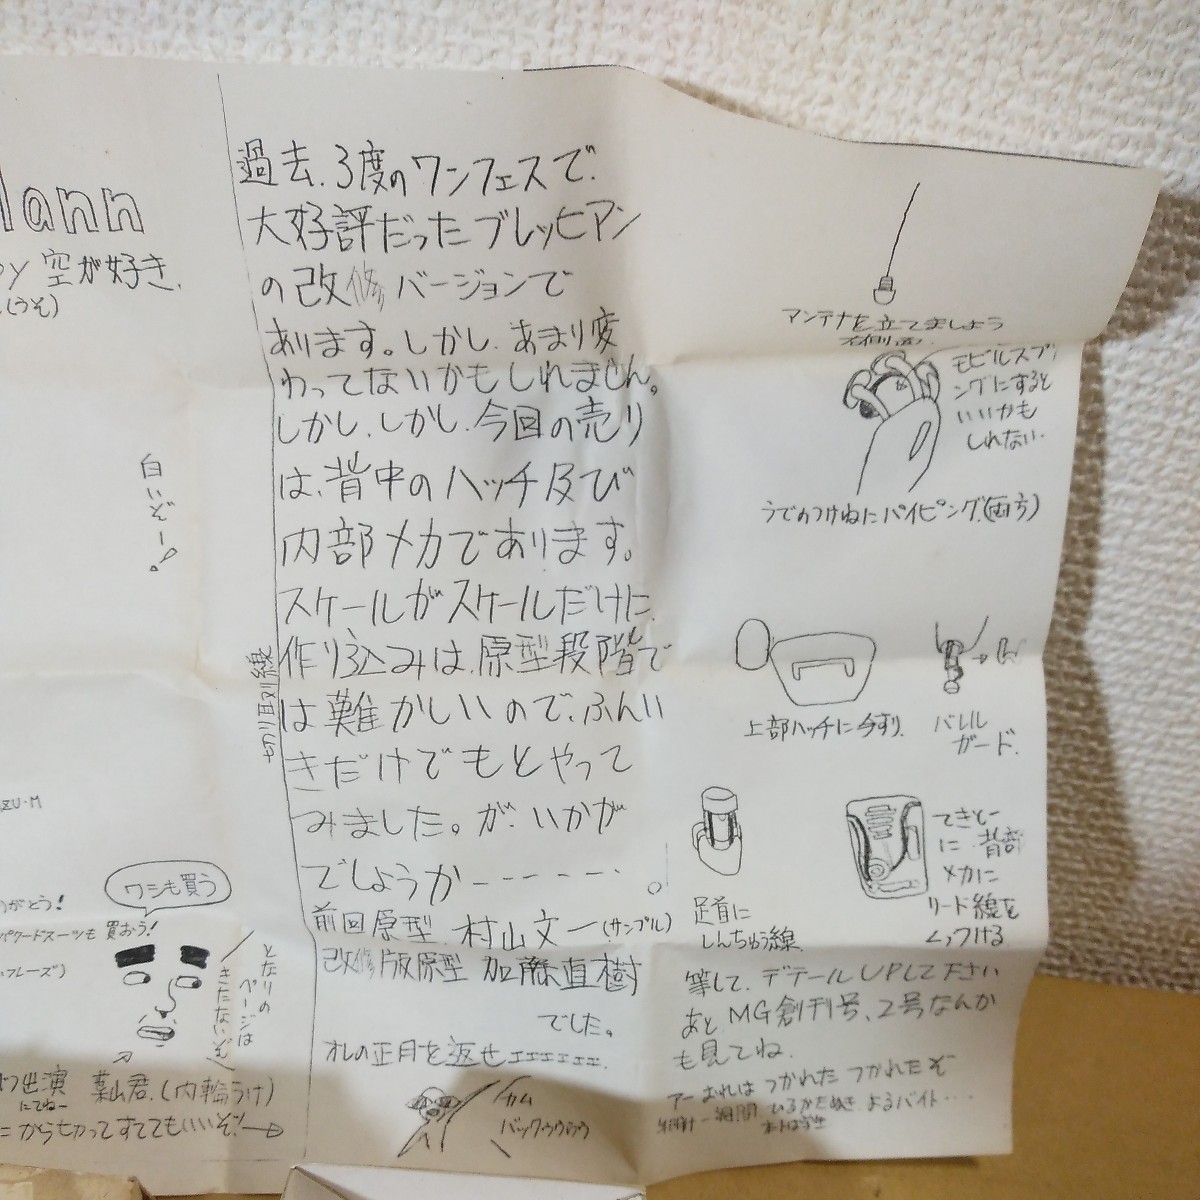 lann
空が好き.
(うそ)
白いぞー。
ワシも買う
がとう!
パワードスーツも買おう!
フレーズ)
となりの
ページは
きたないぞ
出演
にてねー
葉山君.(内輪うけ)
から切ってすててもいいぞ!→
切り取り線
過去.3度のワンフェスで.
大好評だったブレッヒマン
の改修バージョンで
あります。しかし.あまり変
わってないかもしれません。
しかし.しかし.今回の売り
は.背中のハッチ及び
内部メカであります。
スケールがスケールだけに.
作り込みは.原型段階で
は難かしいので.ふんい
きだけでもとやって
みました。が.いかが
でしょうか------。
前回原型. 村山文一(サンプル)
改修版原型 加藤直樹
でした。
オレの正月を返せエエエエエエ.
カム
バックゥゥゥゥ
アンテナを立てましょう
右側面.
モビルスプリ
ングにすると
いいかも
しれない.
うでのつけねにパイピング.(両方)
上部ハッチに手すり.
バレル
ガード.
足首に
しんちゅう線.
てきとー
に 背部
メカに
リード線を
くっつける
等して.デテールUPして下さい
あと MG創刊号、2号なんか
も見てね.
アーおれは つかれた つかれたぞ
年明け一週間 ひるかたぬき よるバイト・・・
本は学生